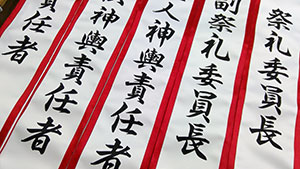 祭礼委員長
副祭礼委員長
人神輿責任者
神輿責任者
責任者